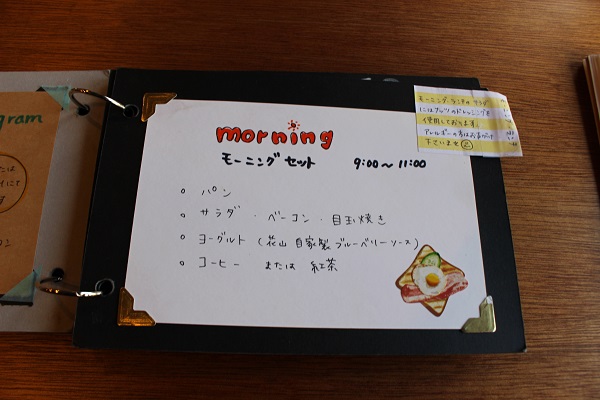 gram
morning
モーニングセット 9:00〜11:00
パン
サラダ・ベーコン・目玉焼き
ヨーグルト (花山 自家製 ブルーベリーソース)
コーヒー または 紅茶
モーニング・ランチの サラダ
にはナッツのドレッシングを
使用しております。
アレルギーの方はお声がけ
下さいませ